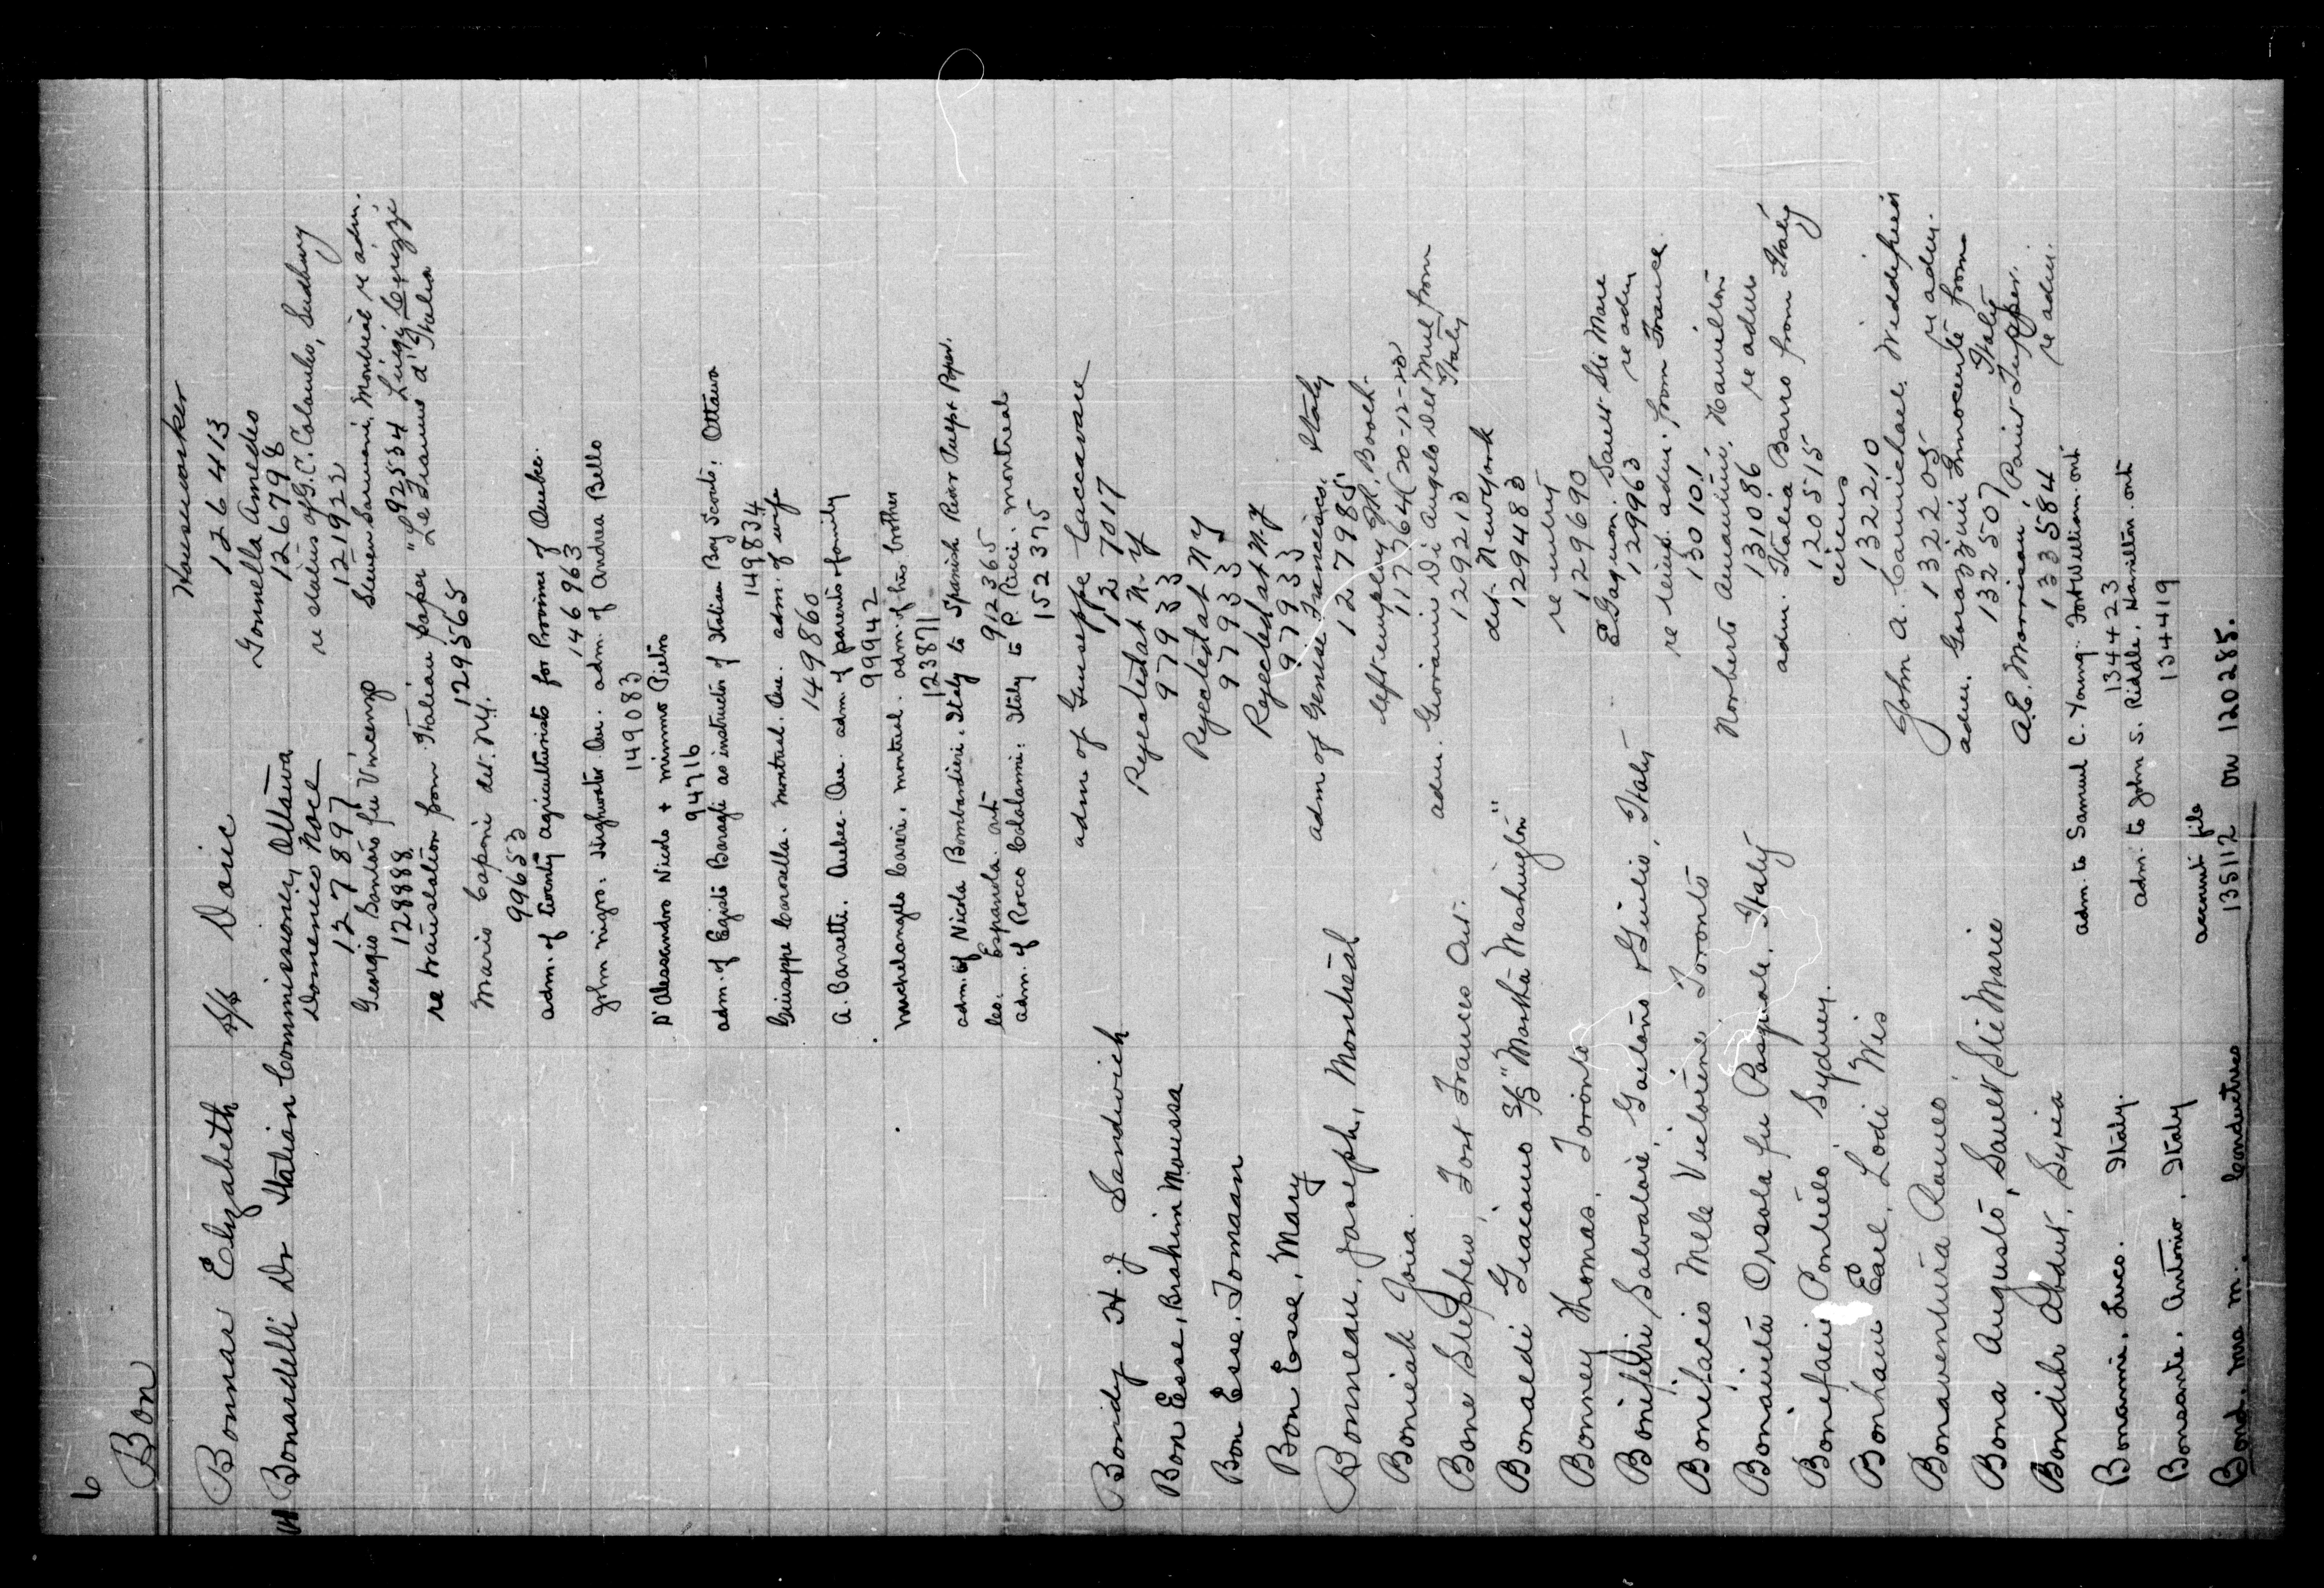 6
Bon
Bonnar Elizabeth S/S Doric Houseworker
126413
Bonardelli Dr Italian Commissioner, Ottawa Gonnella Amedeo
126798
Domenico Noce re status of G. C. Colombo, Sudbury
127897 121922
Georgio Bontoro fu Vincenzo Steven Sarmoni, Montreal re adm.
128888 92534 Luigi
re translation from Italian paper "Le Transus d'Italia
129565
Mario Caponi det. N.Y.
99653
adm. of twenty agriculturists for Province of Quebec.
146963
John Nigro. Highwater Que. adm. of Andrea Bello
149083
D'Alessandro Nicolo + mimmo Pietro
94716
adm. of Egisto Baragli as instructor of Italian Boy Scouts, Ottawa
149834
Giuseppe Carosella. Montreal. Que. adm. of wife
149860
A. Barsetti. Quebec. Que. adm. of parents & family
99942
Michelangelo Careri. Montreal. adm. of his brother
123871
adm. of Nicola Bombardieri. Italy to Spanish River Pulp & Paper.
Co. Espanola. ont 912365
adm. of Rocco Colalanni: Italy to P. Pucci. Montreal
152375
Bondy H. J Sandwich adm of Guiseppe Caccavare
127017
Bon Esse, Brahim Moussa Rejected at N. Y
97933
Bon Esse. Tomaan Rejected at N Y
97933
Bon Esse, Mary Rejected at N. Y
97933
Bonneau, Joseph, Montreal adm of Genise Francisco, Italy
127985
Boneiak Joria. left employ Jh. Booth.
117364 (20-12-23
Bone Stephen, Fort Frances Ont. adm. Giovanni Di Angelo Del Mul from
129213 Italy
Bonaldi Giacomo S/S "Martha Washington" det. New York
129483
Bonney Thomas, Toronto re entry
129690
Bonifedri Salvatore, Gaetano & Giulio, Italy E Gagnon. Sault Ste Marie
129963 re adm
Bonifacio Mlle Victorine Toronto re temp. adm. from France.
130101
Bonainta Orsola fu Pasquale, Italy Norberto Amantini, Hamilton
131086 re adm
Bonefaci Pontielo Sydney. adm. Italia Barro from Italy
120515
Bonham Earl, Lodi Wis circus
132210
Bonaventura Romeo John A. Carmichael, Widdifield
132205 re adm.
Bona Augusto, Sault Ste Marie adm. Garazzini Innocente from
132507 Italy
Bondihr Abdul, Syria A. E. Morrison, Point Tupper.
133584 re adm.
Bonamie, Luco. Italy. adm. to Samuel C. Young. Fort William. ont
134423
Bonsante. Antonio. Italy adm. to John S. Riddle. Hamilton. ont
134419
account file
Bond. Mrs M. Conductress 135112 on 120285.